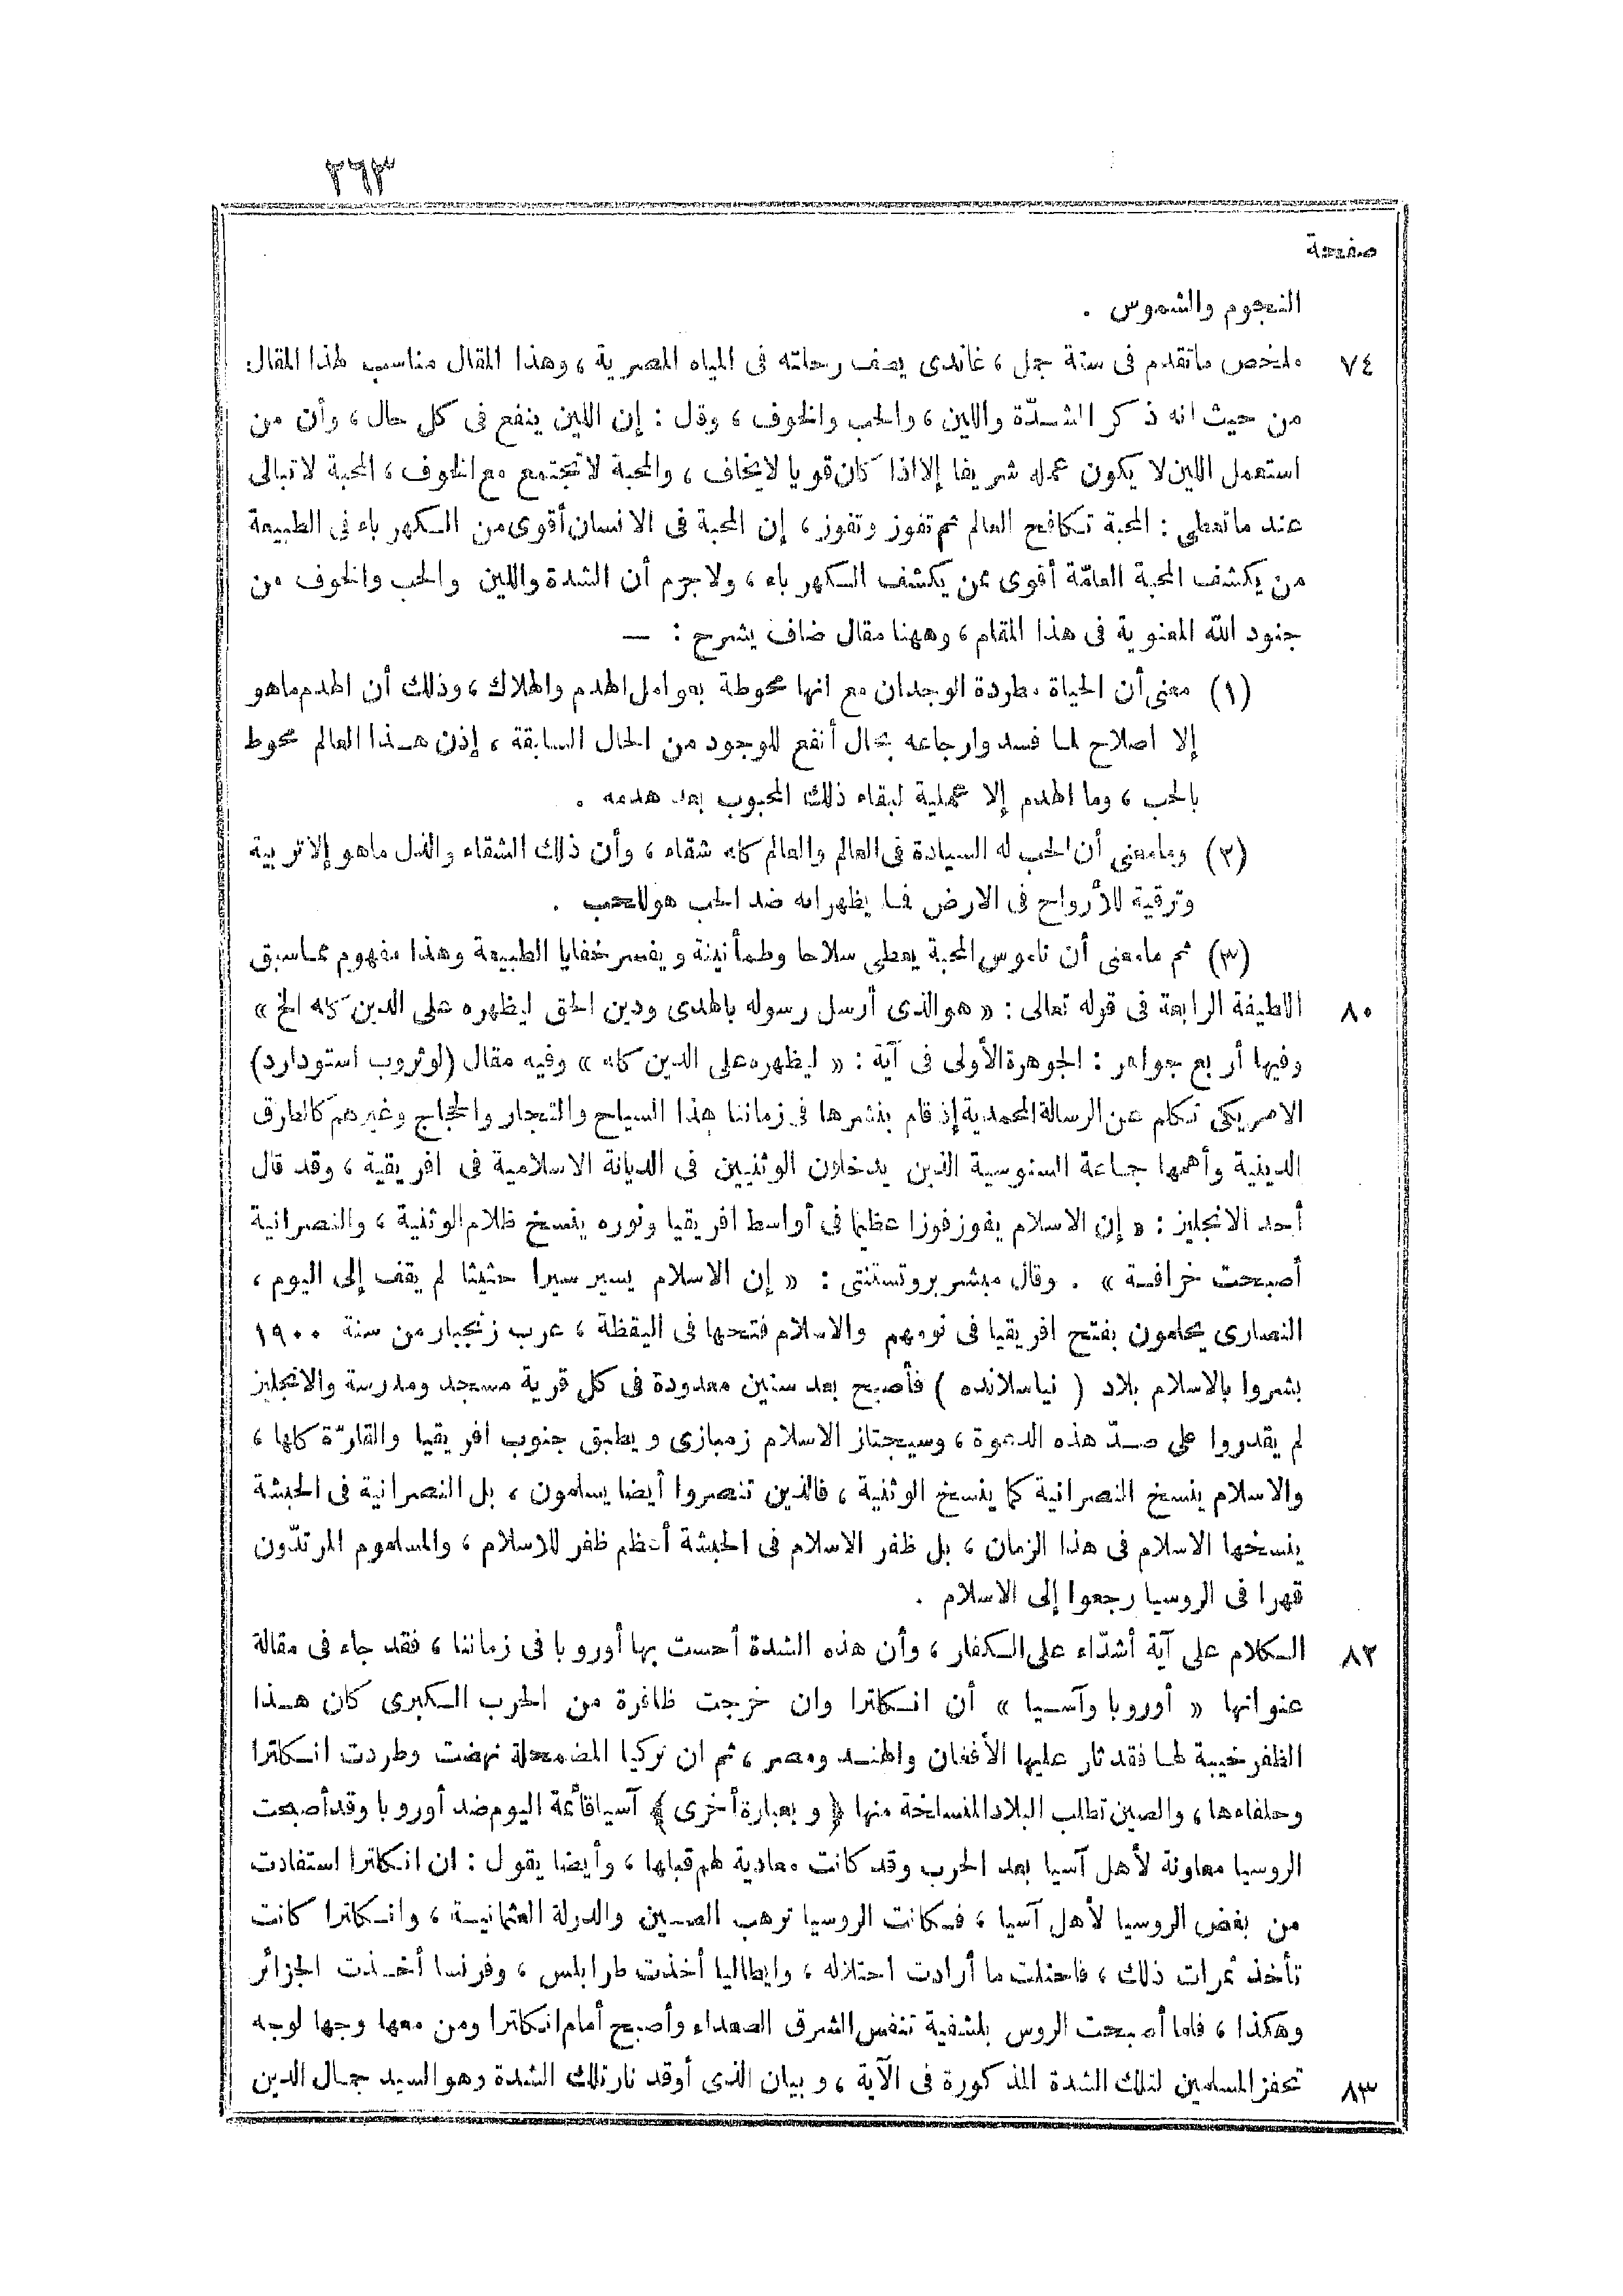 ٢٦٣
صفحة
النجوم والشموس .
٧٤ ملخص ماتقدم فى ستة جمل ، غاندى يصف رحلته فى المياه المصرية ، وهذا المقال مناسب لهذا المقال
من حيث انه ذكر الشدّة واللين ، والحب والخوف ، وقل : إن اللين ينفع فى كل حال ، وأن من
استعمل اللين لا يكون عمله شريفا إلا اذا كان قويا لا يخاف ، والمحبة لا تجتمع مع الخوف ، المحبة لا تبالى
عند ماتعطى : المحبة تكافح العالم ثم تفوز وتفوز ، إن المحبة فى الانسان أقوى من الكهرباء فى الطبيعة
من يكشف المحبة العامّة أقوى ممن يكشف الكهرباء ، ولاجرم أن الشدة واللين والحب والخوف من
جنود الله المعنوية فى هذا المقام ، وههنا مقال ضاف يشرح : —
(١) معنى أن الحياة مطردة الوجدان مع انها محوطة بعوامل الهدم والهلاك ، وذلك أن الهدم ماهو
إلا اصلاح لما فسد وارجاعه بحال أنفع للوجود من الحال السابقة ، إذن هذا العالم محوط
بالحب ، وما الهدم إلا عملية لبقاء ذلك المحبوب بعد هدمه .
(٢) ومامعنى أن الحب له السيادة فى العالم والعالم كله شقاء ، وأن ذلك الشقاء والذل ماهو إلا تربية
وترقية للأرواح فى الارض فما يظهر انه ضد الحب هو للحب .
(٣) ثم مامعنى أن ناموس المحبة يعطى سلاحا وطمأنينة ويفسر خفايا الطبيعة وهذا مفهوم مماسبق
٨٠ اللطيفة الرابعة فى قوله تعالى : « هو الذى أرسل رسوله بالهدى ودين الحق ليظهره على الدين كله الخ »
وفيها أربع جواهر : الجوهرة الأولى فى آية : « ليظهره على الدين كله » وفيه مقال (لوثروب استودارد)
الامريكى تكلم عن الرسالة المحمدية إذ قام بنشرها فى زماننا هذا السياح والتجار والحجاج وغيرهم كالطرق
الدينية وأهمها جماعة السنوسية الذين يدخلون الوثنيين فى الديانة الاسلامية فى افريقية ، وقد قال
أحد الانجليز : « إن الاسلام يفوز فوزا عظيما فى أواسط افريقيا ونوره ينسخ ظلام الوثنية ، والنصرانية
أصبحت خرافة » . وقال مبشر بروتستنتى : « إن الاسلام يسير سيرا حثيثا لم يقف إلى اليوم ،
النصارى يحلمون بفتح افريقيا فى نومهم والاسلام فتحها فى اليقظة ، عرب زنجبار من سنة ١٩٠٠
بشروا بالاسلام بلاد ( نياسلانده ) فأصبح بعد سنين معدودة فى كل قرية مسجد ومدرسة والانجليز
لم يقدروا على صدّ هذه الدعوة ، وسيجتاز الاسلام زمبازى ويطبق جنوب افريقيا والقارّة كلها ،
والاسلام ينسخ النصرانية كما ينسخ الوثنية ، فالذين تنصروا أيضا يسلمون ، بل النصرانية فى الحبشة
ينسخها الاسلام فى هذا الزمان ، بل ظفر الاسلام فى الحبشة أعظم ظفر للاسلام ، والمسلموم المرتدّون
قهرا فى الروسيا رجعوا إلى الاسلام .
٨٢ الكلام على آية أشدّاء على الكفار ، وأن هذه الشدة أحست بها أوروبا فى زماننا ، فقد جاء فى مقالة
عنوانها « أوروبا وآسيا » أن انكلترا وان خرجت ظافرة من الحرب الكبرى كان هذا
الظفر خيبة لها فقد ثار عليها الأفغان والهند ومصر ، ثم ان تركيا المضمحلة نهضت وطردت انكلترا
وحلفاءها ، والصين تطلب البلاد المنسلخة منها ﴿ وبعبارة أخرى ﴾ آسيا قائمة اليوم ضد أوروبا وقد أصبحت
الروسيا معاونة لأهل آسيا بعد الحرب وقد كانت معادية لهم قبلها ، وأيضا يقول : ان انكلترا استفادت
من بغض الروسيا لأهل آسيا ، فكانت الروسيا ترهب الصين والدولة العثمانية ، وانكلترا كانت
تأخذ ثمرات ذلك ، فاحتلت ما أرادت احتلاله ، وايطاليا أخذت طرابلس ، وفرنسا أخذت الجزائر
وهكذا ، فلما أصبحت الروس بلشفية تنفس الشرق الصعداء وأصبح أمام انكلترا ومن معها وجها لوجه
٨٣ تحفز المسلمين لتلك الشدة المذكورة فى الآية ، وبيان الذى أوقد نار تلك الشدة وهو السيد جمال الدين